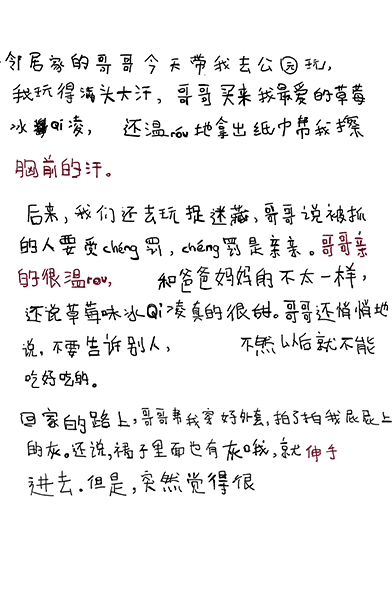 邻居家的哥哥今天带我去公园玩,
我玩得满头大汗,哥哥买来我最爱的草莓
冰Qi凌, 还温róu地拿出纸巾帮我擦
胸前的汗。
后来,我们还去玩捉迷藏,哥哥说被抓
的人要受chéng罚,chéng罚是亲亲。哥哥亲
的很温rou, 和爸爸妈妈的不太一样,
还说草莓味冰Qi凌真的很甜。哥哥还悄悄地
说,不要告诉别人, 不然以后就不能
吃好吃的。
回家的路上,哥哥帮我穿好外套,拍了拍我屁屁上
的灰。还说,裙子里面也有灰哦,就伸手
进去.但是,突然觉得很